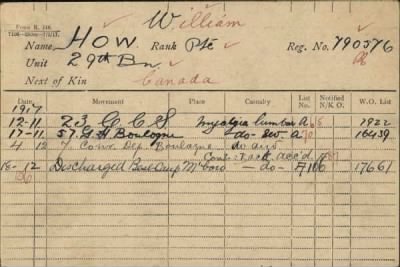 William
Name, HOW. Rank Pte Reg. No. 790576
Unit 29th Bn.
Next of Kin Canada
Date Movement Place Casualty List No. Notified N/K O. W.O. List
1917
12-11 23 C.C.S. Myalgia lumbar A 68 7922
17-11 57 G.H. Boulogne do- Sev. A 70 16439
4 12 7. Conv. Dep. Boulogne do and
Cont: T. ack. acc'd
18-12 Discharged Base Dep — do — A106 17661